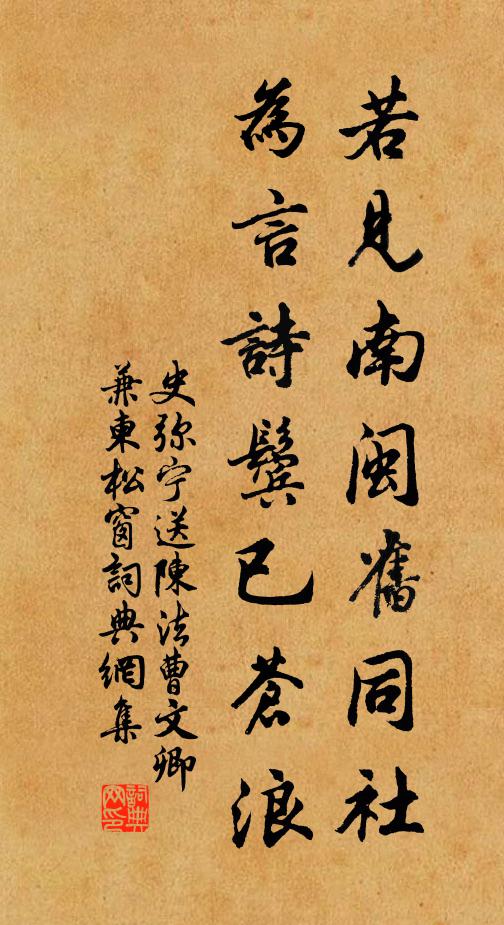 若見南閩舊同社
為言詩鬢已蒼浪
史弥宁送陳法曹文卿
兼東松窗詞典網集
詞典网印